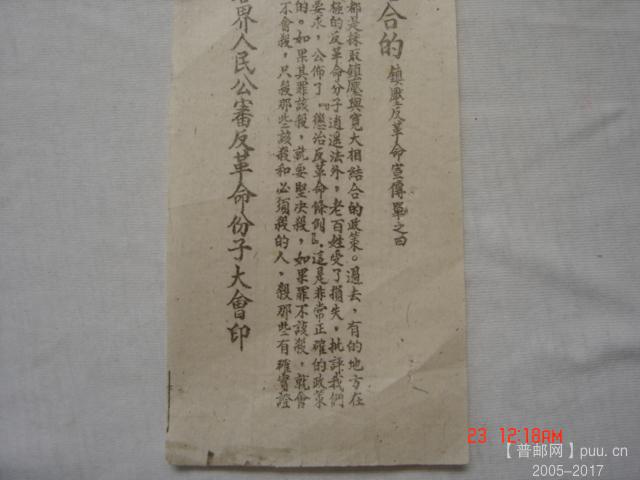 合的
鎮壓反革命宣傳單之四
都是採取鎮壓與寬大相結合的政策。過去,有的地方在
極的反革命分子逍遥法外,老百姓受了損失,批評我們
要求,公佈了『懲治反革命條例』,這是非常正確的政策
的。如果其罪該殺,就要堅决殺,如果罪不該殺,就會
不會殺,只殺那些該殺和必須殺的人,殺那些有確實證
界人民公審反革命份子大會印
23 12:18AM
【普邮网】puu.cn
2005-2017